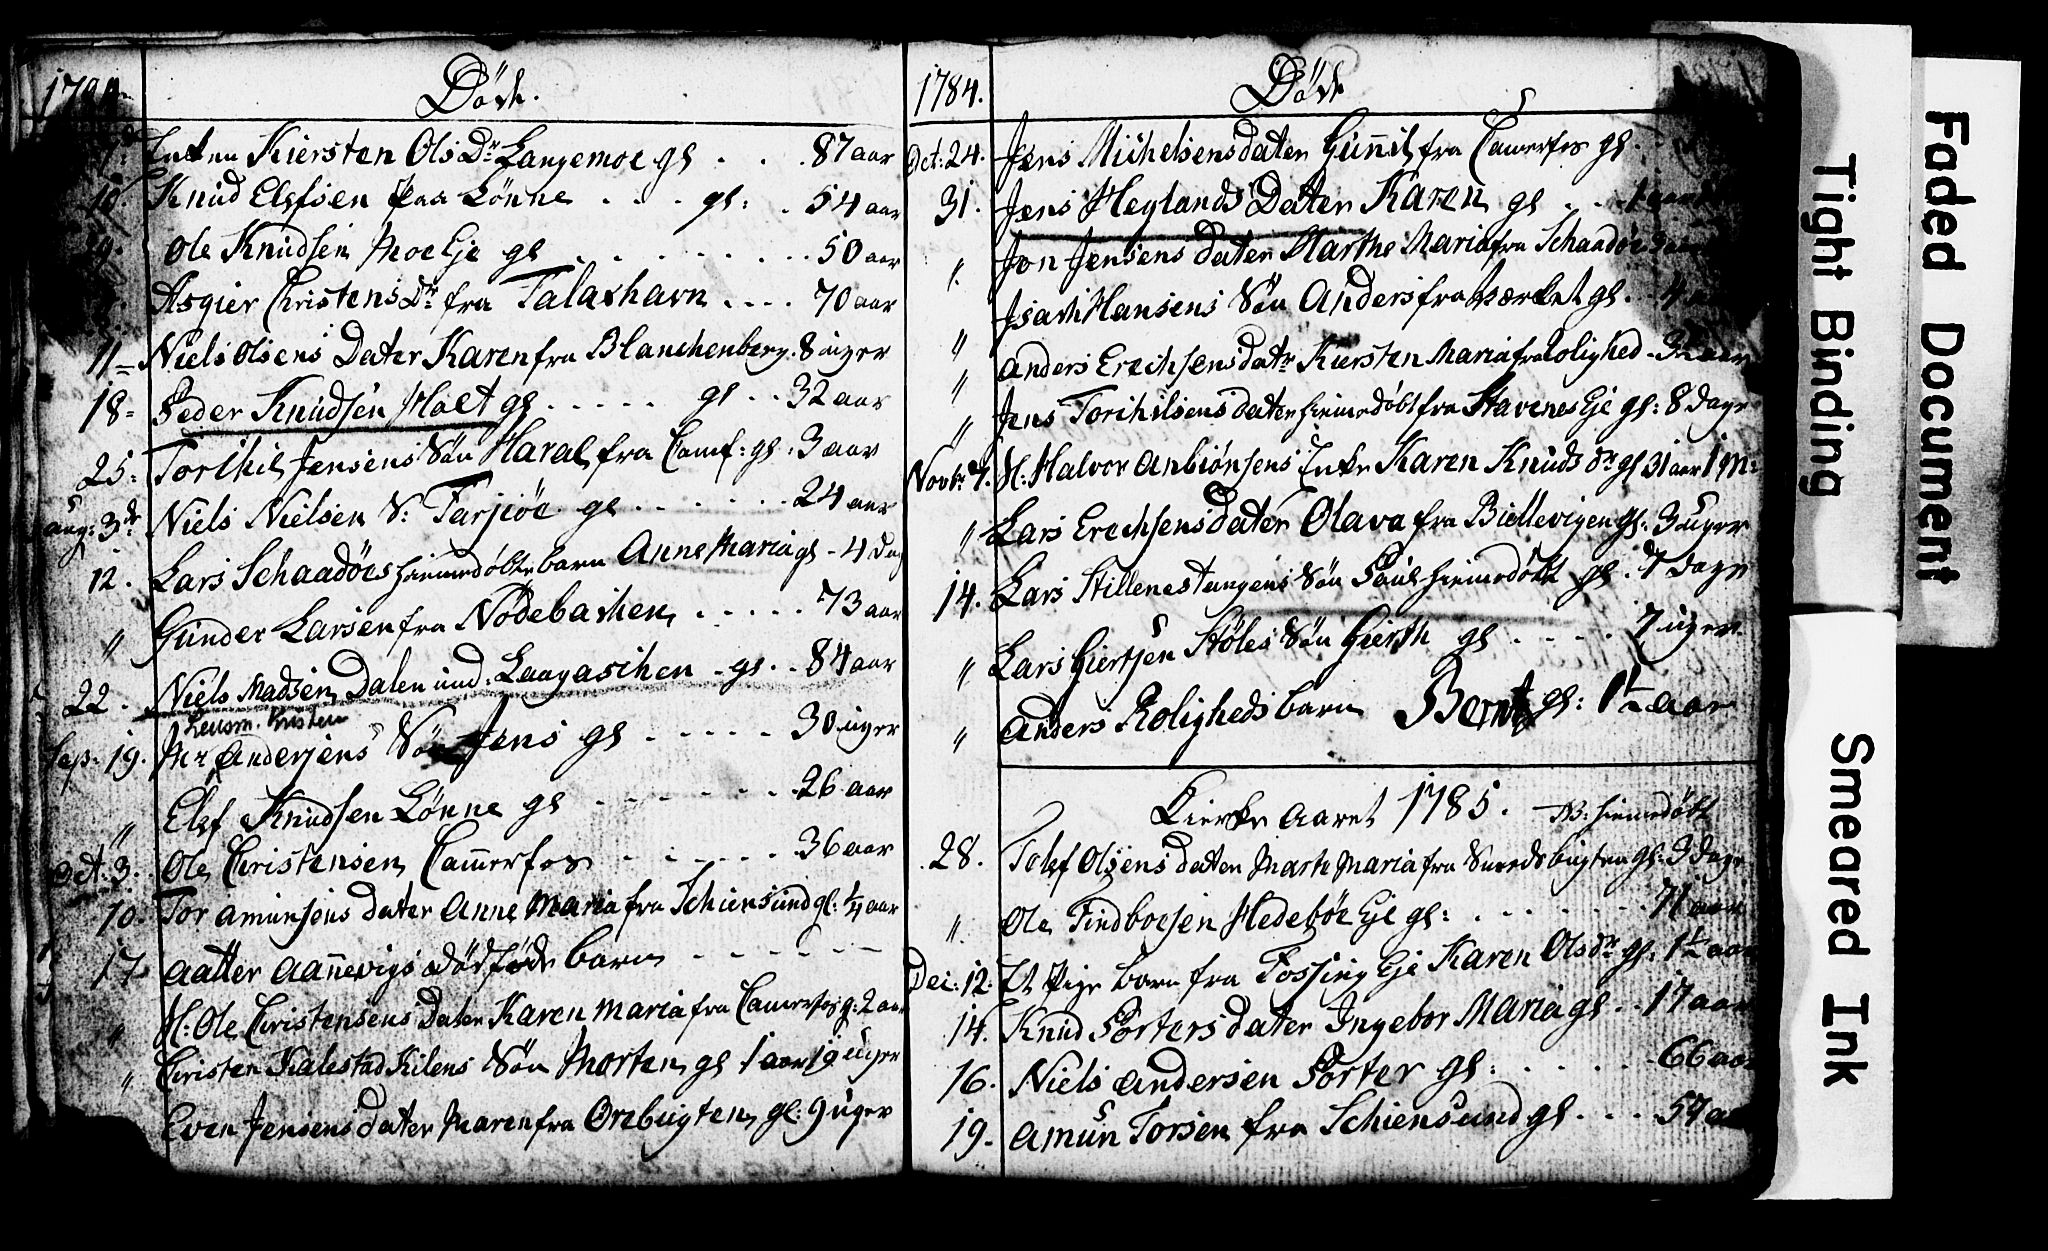 1784.
Døde.
Enken Kiersten Ols Dr Langemoe gl . . . 87 aar
18. Knud Elefsen paa Lønne . . . gl: . 54 aar
Ole Knudsen Moe Eje gl . . . . . . . . 50 aar
Asgier Christens Dr fra Talaxhavn . . . . 70 aar
11 = Niels Olsens Dater Karen fra Blanchenberg . 8 uger
18 = Peder Knudsen Moet gl . . . . . gl . . 32 aar
25: Torikil Jensens Søn Haral fra Camf: gl . 3 aar
Aug: 3de Niels Nielsen S: Tarjiøe gl . . . . . . 24 aar
12. Lars Schaadöes hiemedøbte barn Anne Maria gl - 4 dag
" Gunder Larsen fra Nødebachen . . . . . 73 aar
22. Niels Madsen Dalen und: Langaschen - gl . . 84 aar
Lensm. Kristen
Sep: 19. Mr Andersens Søn Jens gl . . . . . 30 uger
" Elef Knudsen Lønne gl . . . . . . . 26 aar
Oct: 3. Ole Christensen Camerfos . . . . . . 36 aar
10. Tor Amunsens dater Anne Maria fra Schiensund gl: ¼ aar
17 Aatter Aanevigs dødføde barn - - - - - -
" H: Ole Christensens Dater Karen Maria fra Camerfos g: 2 aar
" Christen Kalestad Kilens Søn Morten gl 1 aar 19 uger
Even Jensens dater Maren fra Orebugten gl: 9 uger
1784.
Døde
Oct: 24. Jens Michelsens dater Gunnil fra Camerfos gl .
31. Jens Heglands Dater Karen gl . . 1 aar
" Jon Jensens dater Marthe Maria fra Schaadöe 3 aar
" Isach Hansens Søn Anders fra Værket gl . . 4
" Anders Erechsens datr Kiersten Maria fra Rolighed - 3½ aar
" Jens Torikilsens dater hiemedøbt fra Stavenes Eje gl: 8 dage
Novbr 7. H: Halvor Anbiønsens Enke Karen Knuds dr gl 31 aar 1 m:
" Lars Erechsens dater Olava fra Biellevigen gl: 3 uger
14. Lars Stillenestangens Søn Paul hiemedøbt gl . 7 dage
" Lars Giertsen Støles Søn Gierth gl . . . . . 7 uger
" Anders Rolighedsbarn Bernt gl: 1½ aar
Kierke Aaret 1785. NB: hiemedøbt
28. Tolef Olsens dater Marte Maria fra Sverdsbugten gl: 3 dage
" Ole Findboesen Hedebøe Eje gl: . . . . . . . . 71 aar
Dec: 12. Et Pige barn fra Fossing Eje Karen Olsdr gl. 1½ aar
14. Knud Porters dater Ingebor Maria gl . . 17 aar
16. Niels Andersen Porter gl: . . . . . - 66 aar
19. Amun Torsen fra Schiensund gl . . . 57 aar
Faded Document
Tight Binding
Smeared Ink